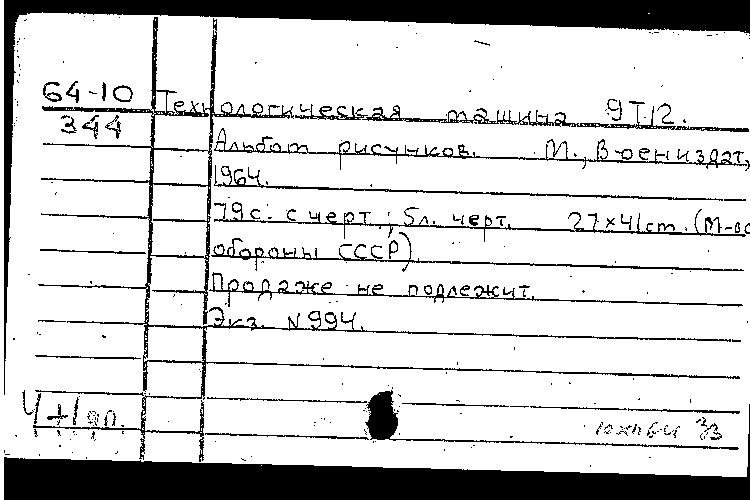 64-10
344
Технологическая машина 9Т12.
Альбом рисунков. М., Воениздат,
1964.
79с. с черт.; 5л. черт. 27×41cm. (М-во
обороны СССР)
Продаже не подлежит.
Экз. N994.
4+1